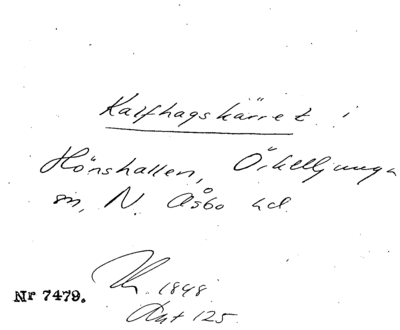 Kalfhagskärret i
Hönshallen, Örkelljunga
sn, N. Åsbo hd.
1848
Nr 7479.
Ant 125.